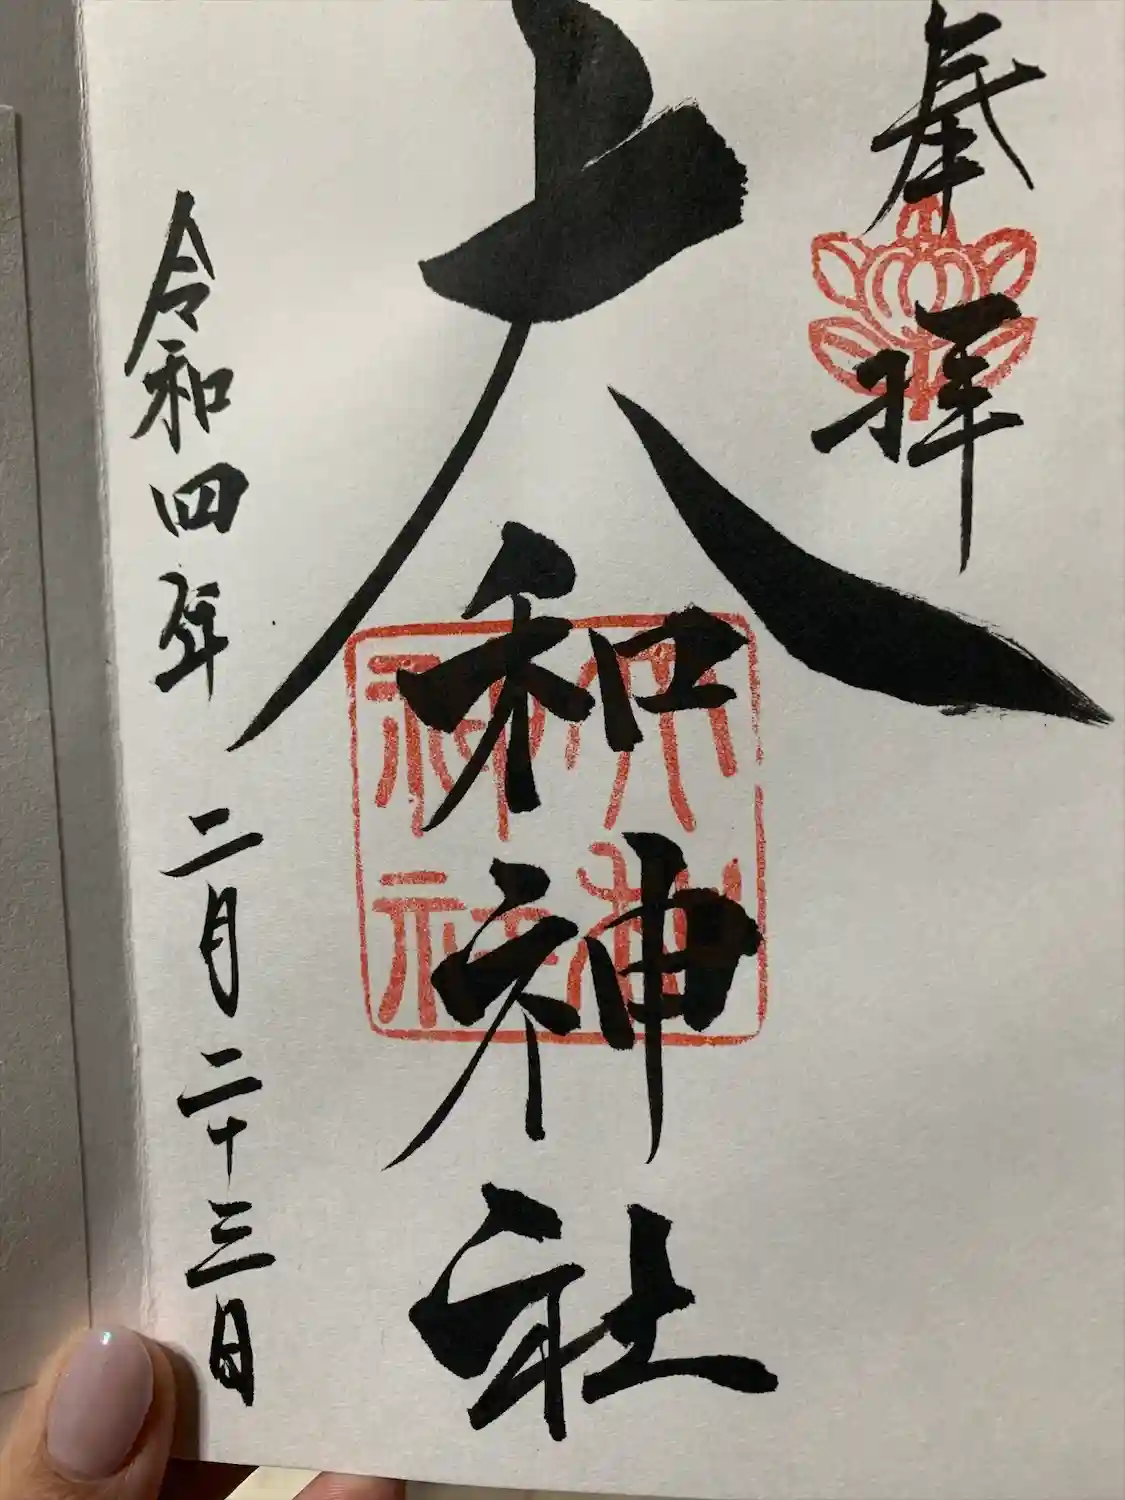 奉拝
大和神社
大和
神社
令和四年二月二十三日